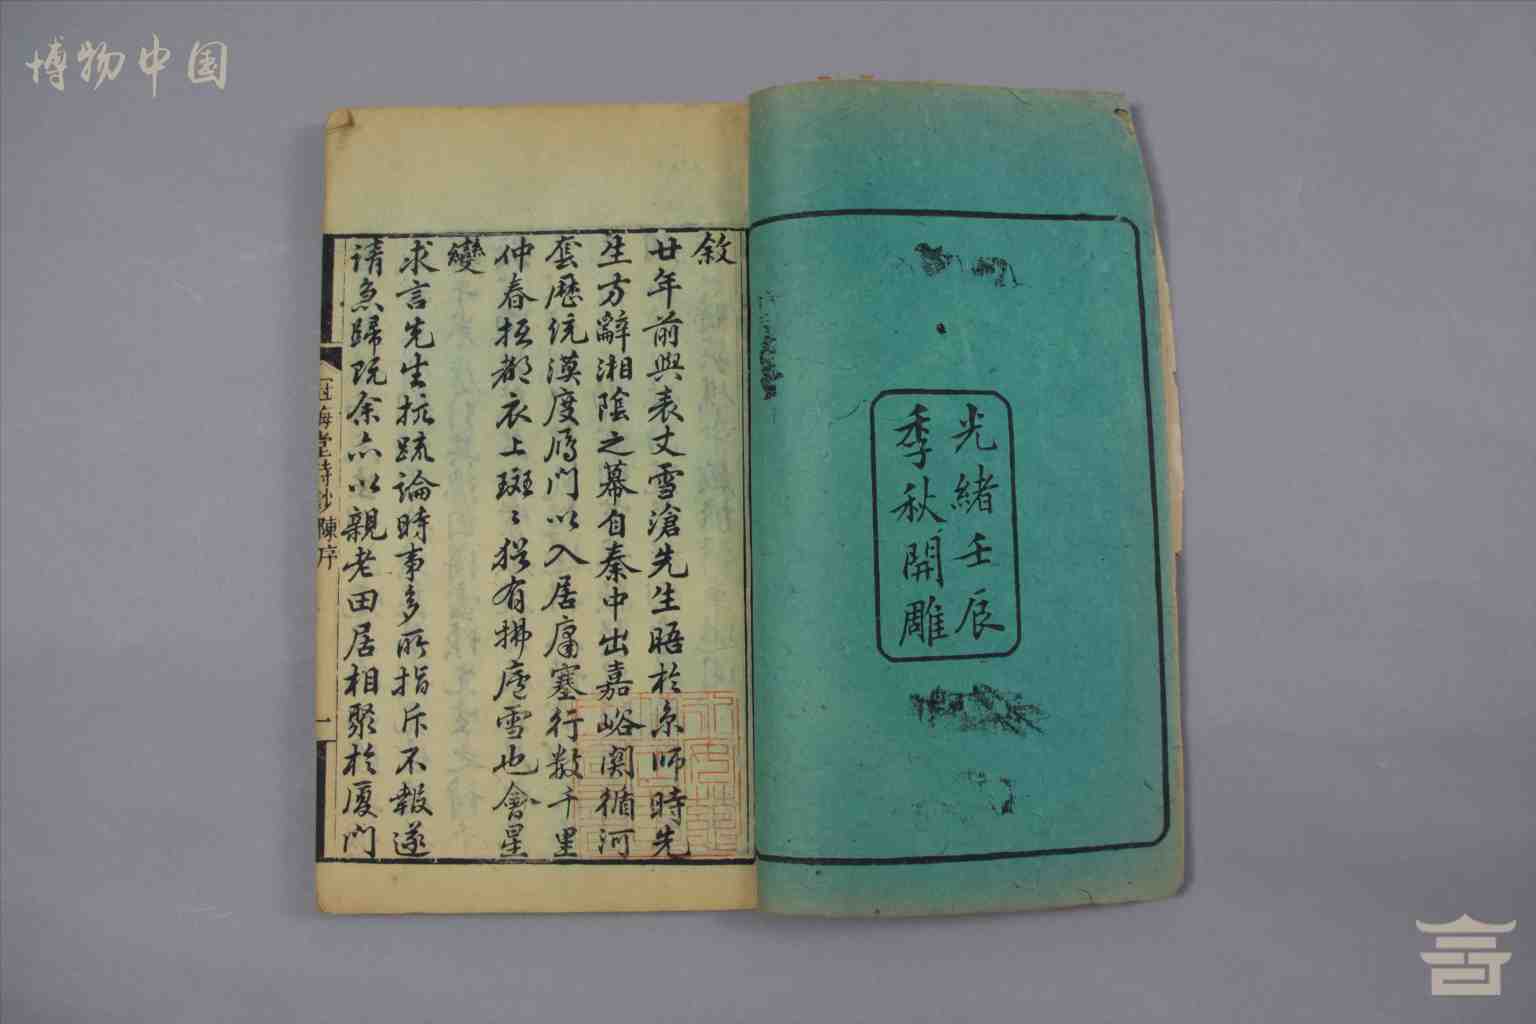 博物中国
光緒壬辰
季秋開雕
敘
廿年前與表丈雪滄先生晤於京師時先
生方辭湘陰之幕自秦中出嘉峪関循河
套歷沅漠度鴈门以入居庸塞行數千里
仲春抵都衣上斑〻猶有拂廬雪也會星
變
求言先生抗疏論時事多所指斥不報遂
請急歸既余亦以親老田居相聚於廈门
冠悔堂詩鈔 陳序 一